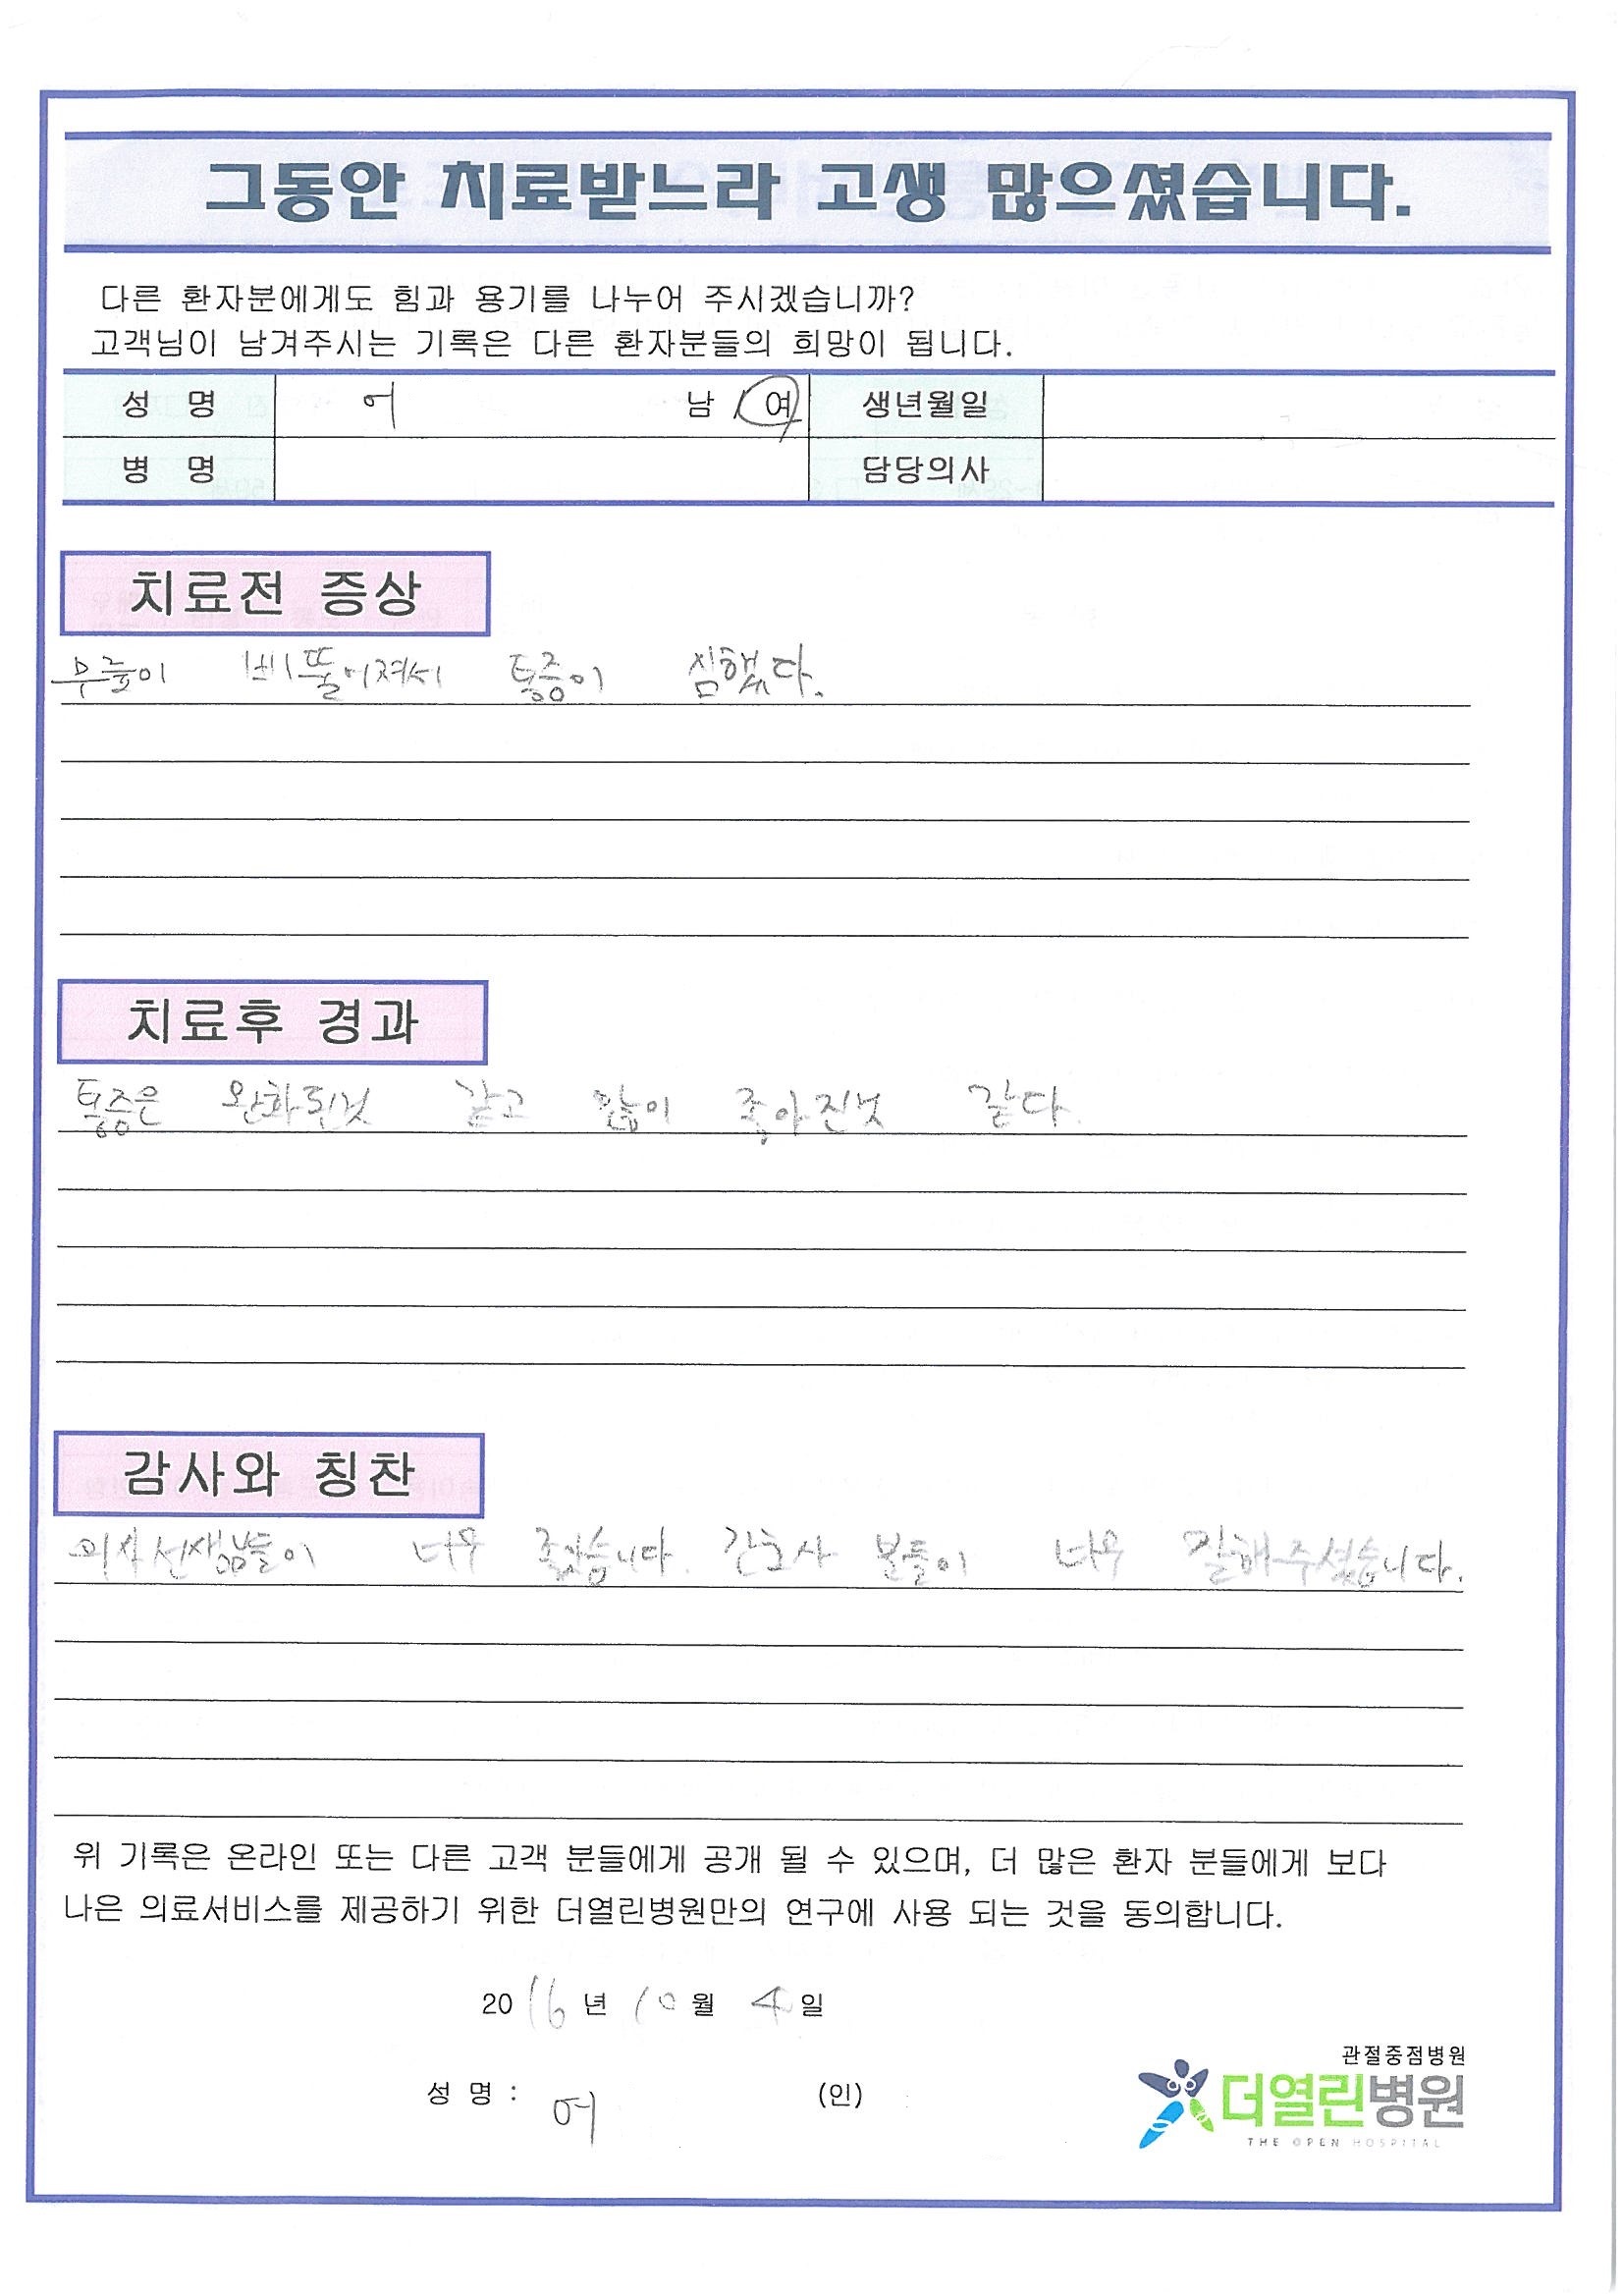 그동안 치료받느라 고생 많으셨습니다.
다른 환자분에게도 힘과 용기를 나누어 주시겠습니까?
고객님이 남겨주시는 기록은 다른 환자분들의 희망이 됩니다.
성 명 어 남 / 여 생년월일
병 명 담당의사
치료전 증상
무릎이 삐뚤어져서 통증이 심했다.
치료후 경과
통증은 완화된것 같고 많이 좋아진것 같다.
감사와 칭찬
의사선생님들이 너무 좋았습니다. 간호사 분들이 너무 잘해주셨습니다.
위 기록은 온라인 또는 다른 고객 분들에게 공개 될 수 있으며, 더 많은 환자 분들에게 보다
나은 의료서비스를 제공하기 위한 더열린병원만의 연구에 사용 되는 것을 동의합니다.
2016년 10월 4일
성 명 : 어 (인)
관절중점병원
더열린병원
THE OPEN HOSPITAL